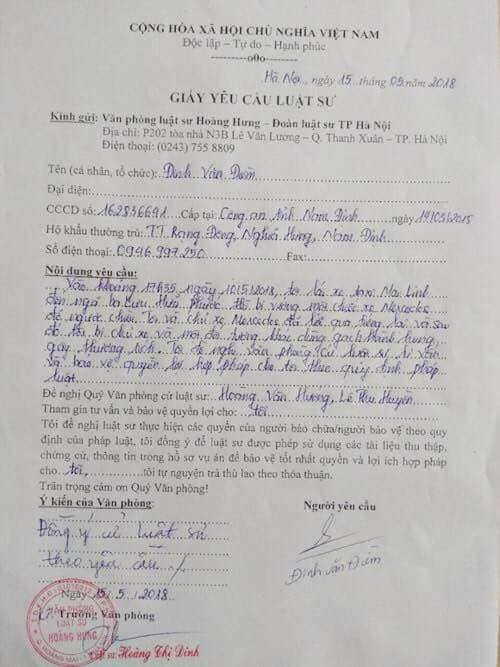 CỘNG HÒA XÃ HỘI CHỦ NGHĨA VIỆT NAM
Độc lập – Tự do – Hạnh phúc
----------o0o----------
Hà Nội, ngày 15 tháng 05 năm 2018
GIẤY YÊU CẦU LUẬT SƯ
Kính gửi: Văn phòng luật sư Hoàng Hưng – Đoàn luật sư TP Hà Nội
Địa chỉ: P202 tòa nhà N3B Lê Văn Lương – Q. Thanh Xuân – TP. Hà Nội
Điện thoại: (0243) 755 8809
Tên (cá nhân, tổ chức): Đinh Văn Điềm
Đại diện:
CCCD số: 162836691 Cấp tại: Công an tỉnh Nam Định ngày 14/03/2015
Hộ khẩu thường trú: TT. Rạng Đông, Nghĩa Hưng, Nam Định
Số điện thoại: 0946.997.250 Fax:
Nội dung yêu cầu:
Vào khoảng 17h35 ngày 10/5/2018, tôi lái xe taxi Mai Linh
đến ngã ba Lưu Hữu Phước thì bị vướng một chiếc xe Mercedes
đi ngược chiều. Tôi và chủ xe Mercedes đã lời qua tiếng lại và sau
đó tôi bị chủ xe và một đối tượng khác dùng gạch hành hung,
gây thương tích. Tôi đề nghị văn phòng cử luật sư tư vấn
và bảo vệ quyền lợi hợp pháp cho tôi theo quy định pháp
luật.
Đề nghị Quý Văn phòng cử luật sư: Hoàng Văn Hướng, Lê Thu Huyền
Tham gia tư vấn và bảo vệ quyền lợi cho: tôi
Tôi đề nghị luật sư thực hiện các quyền của người bào chữa/người bảo vệ theo quy
định của pháp luật, tôi đồng ý để luật sư được phép sử dụng các tài liệu thu thập,
chứng cứ, thông tin trong hồ sơ vụ án để bảo vệ tốt nhất quyền và lợi ích hợp pháp
cho tôi, tôi tự nguyện trả thù lao theo thỏa thuận.
Trân trọng cảm ơn Quý Văn phòng!
Ý kiến của Văn phòng: Người yêu cầu
Đồng ý cử luật sư
theo yêu cầu
Ngày 15/5/2018
Trưởng Văn phòng
Đinh Văn Điềm
VĂN PHÒNG
LUẬT SƯ
HOÀNG HƯNG
Hoàng Thị Dinh